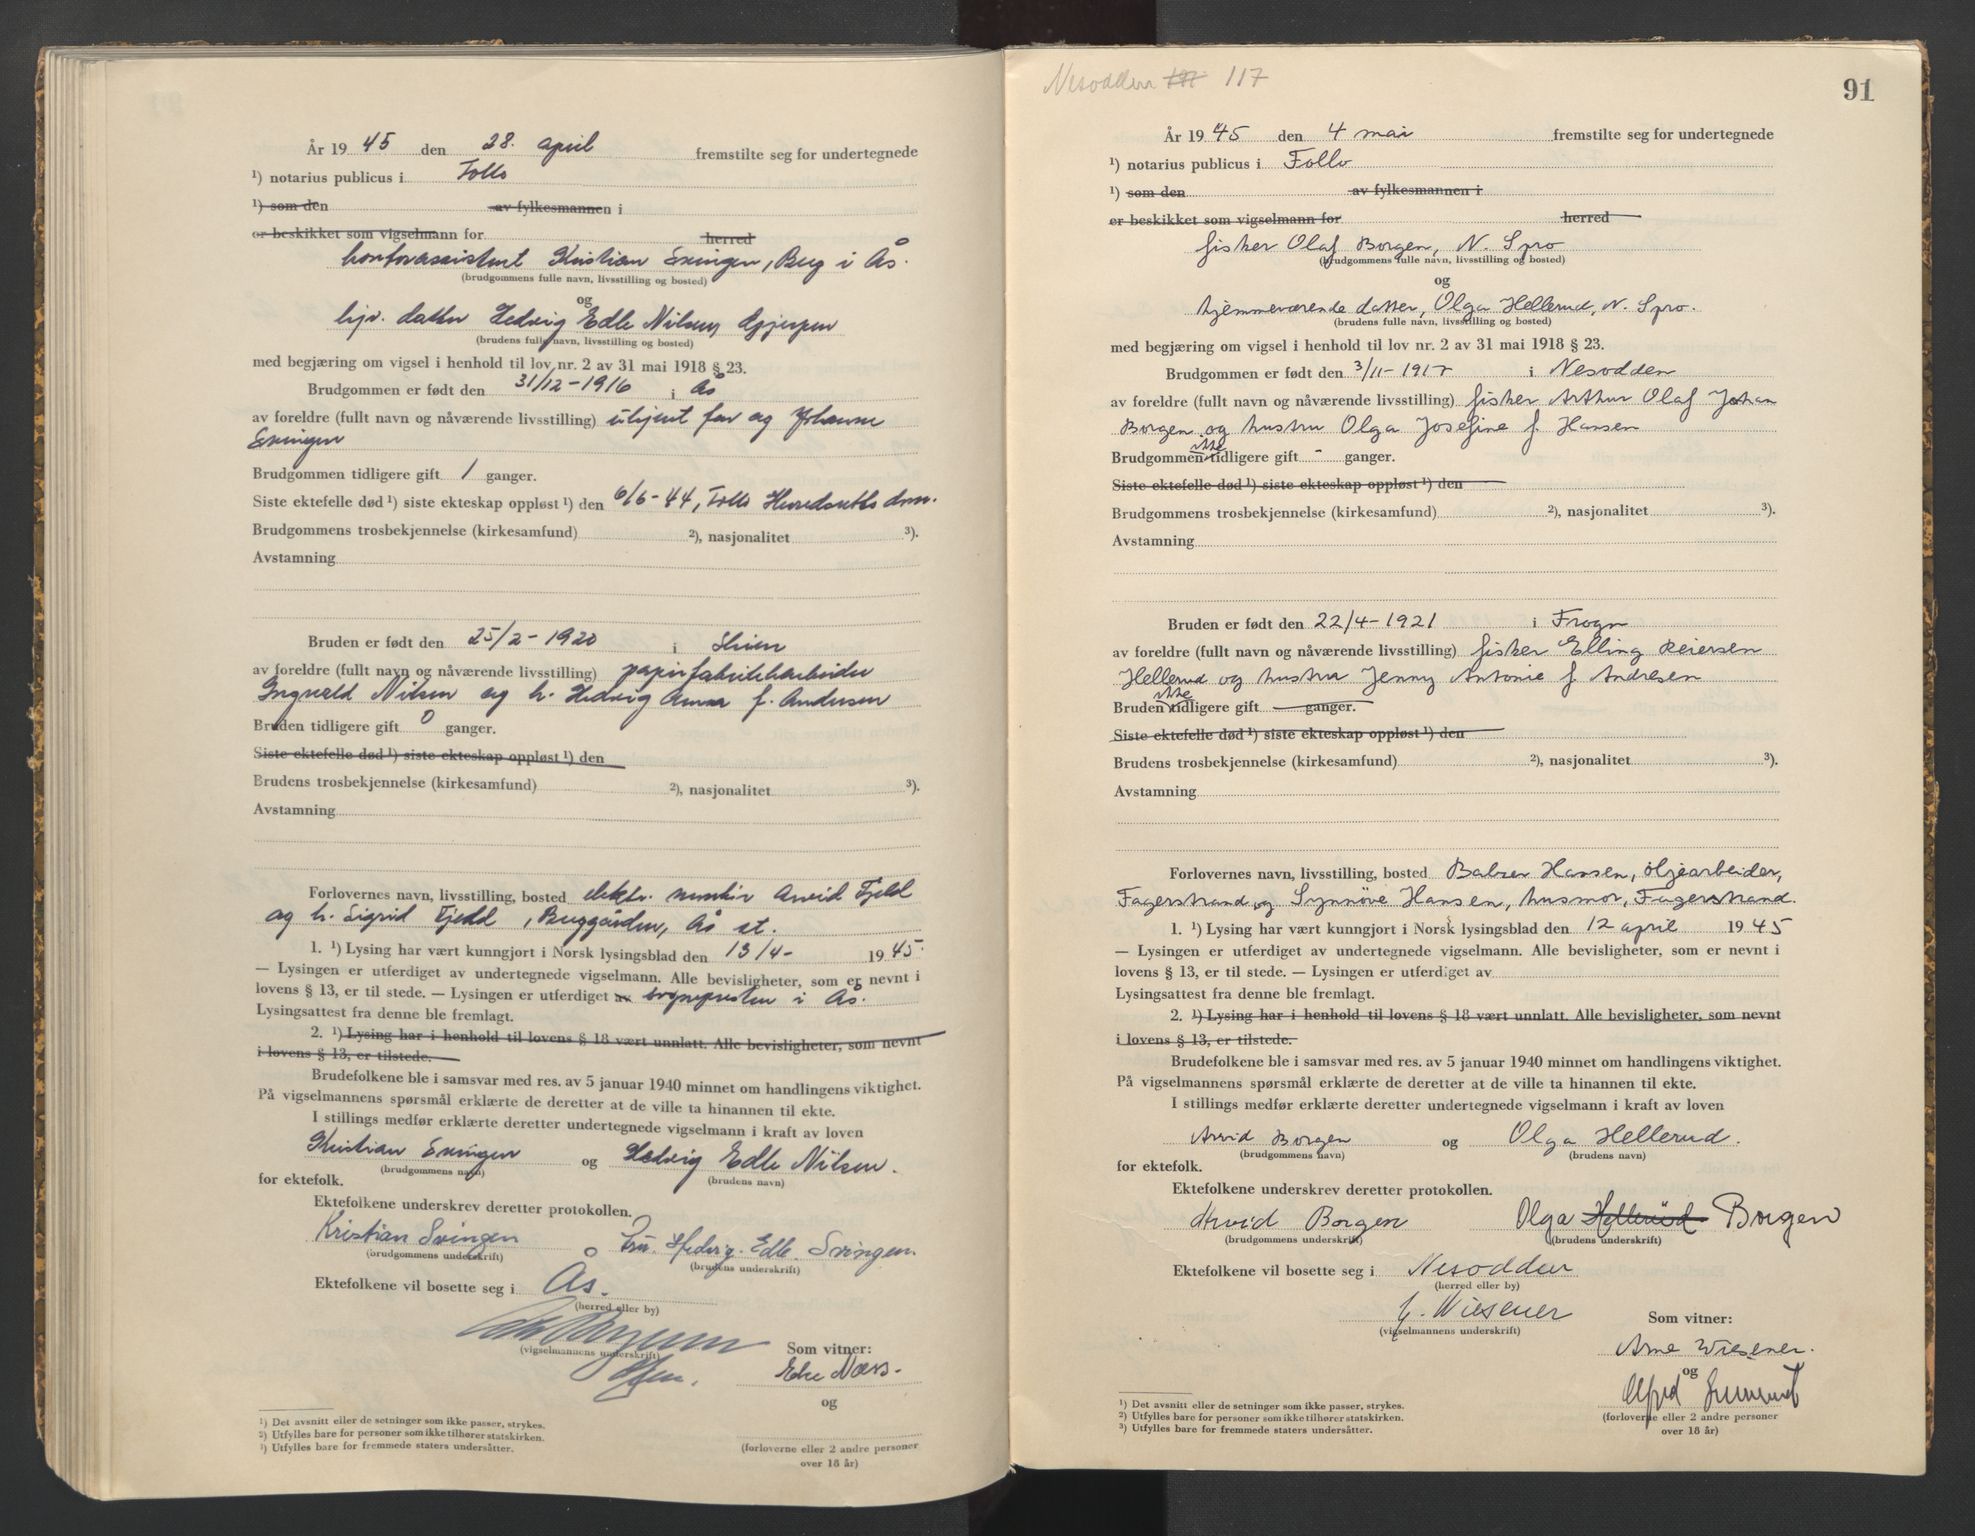 År 19 45 den 28. april fremstilte seg for undertegnede
¹) notarius publicus i Follo
¹) som den av fylkesmannen i
er beskikket som vigselmann for herred
kontorassistent Kristian Svingen, Bug i Ås.
(brudgommens fulle navn, livsstilling og bosted)
og
hjv. datter Hedvig Edle Nilsen, Gjerpen
(brudens fulle navn, livsstilling og bosted)
med begjæring om vigsel i henhold til lov nr. 2 av 31 mai 1918 § 23.
Brudgommen er født den 31/12-1916 i Ås
av foreldre (fullt navn og nåværende livsstilling) ukjent far og Johanne
Svingen
Brudgommen tidligere gift 1 ganger.
Siste ektefelle død ¹) siste ekteskap oppløst ¹) den 6/6-44, Follo Herredsretts dom.
Brudgommens trosbekjennelse (kirkesamfund) ²), nasjonalitet ³).
Avstamning
Bruden er født den 25/2-1920 i Skien
av foreldre (fullt navn og nåværende livsstilling) papirfabrikkarbeider
Ingvald Nilsen og h. Hedvig Anna f. Andersen
Bruden tidligere gift 0 ganger.
Siste ektefelle død ¹) siste ekteskap oppløst ¹) den
Brudens trosbekjennelse (kirkesamfund) ²), nasjonalitet ³).
Avstamning
Forlovernes navn, livsstilling, bosted elektr. montør Arvid Fjeld
og h. Sigrid Fjeld, Buggården, Ås st.
1. ¹) Lysing har vært kunngjort i Norsk lysingsblad den 13/4- 19 45.
— Lysingen er utferdiget av undertegnede vigselmann. Alle bevisligheter, som er nevnt i
lovens § 13, er til stede. — Lysingen er utferdiget av sognepresten i Ås.
Lysingsattest fra denne ble fremlagt.
2. ¹) Lysing har i henhold til lovens § 18 vært unnlatt. Alle bevisligheter, som nevnt
i lovens § 13, er tilstede.
Brudefolkene ble i samsvar med res. av 5 januar 1940 minnet om handlingens viktighet.
På vigselmannens spørsmål erklærte de deretter at de ville ta hinannen til ekte.
I stillings medfør erklærte deretter undertegnede vigselmann i kraft av loven
Kristian Svingen og Hedvig Edle Nilsen.
(brudgommens navn) (brudens navn)
for ektefolk.
Ektefolkene underskrev deretter protokollen.
Kristian Svingen Fru. Hedvig. Edle. Svingen.
(brudgommens underskrift) (brudens underskrift)
Ektefolkene vil bosette seg i Ås.
(herred eller by)
(vigselmannens underskrift) Som vitner:
Edle Næss.
og
¹) Det avsnitt eller de setninger som ikke passer, strykes.
²) Utfylles bare for personer som ikke tilhører statskirken.
³) Utfylles bare for fremmede staters undersåtter.
(forloverne eller 2 andre personer
over 18 år)
Nesodden 117
91
År 19 45 den 4 mai fremstilte seg for undertegnede
¹) notarius publicus i Follo
¹) som den av fylkesmannen i
er beskikket som vigselmann for herred
fisker Olaf Borgen, N. Spro
(brudgommens fulle navn, livsstilling og bosted)
og
hjemmeværende datter, Olga Hellerud, N. Spro.
(brudens fulle navn, livsstilling og bosted)
med begjæring om vigsel i henhold til lov nr. 2 av 31 mai 1918 § 23.
Brudgommen er født den 3/11-1917 i Nesodden
av foreldre (fullt navn og nåværende livsstilling) fisker Arthur Olaf Johan
Borgen og hustru Olga Josefine f. Hansen
Brudgommen ikke tidligere gift - ganger.
Siste ektefelle død ¹) siste ekteskap oppløst ¹) den
Brudgommens trosbekjennelse (kirkesamfund) ²), nasjonalitet ³).
Avstamning
Bruden er født den 22/4-1921 i Frogn
av foreldre (fullt navn og nåværende livsstilling) fisker Elling Reiersen
Hellerud og hustru Jenny Antonie f. Andresen
Bruden ikke tidligere gift ganger.
Siste ektefelle død ¹) siste ekteskap oppløst ¹) den
Brudens trosbekjennelse (kirkesamfund) ²), nasjonalitet ³).
Avstamning
Forlovernes navn, livsstilling, bosted Balzer Hansen, oljearbeider,
Fagerstrand og Synnöve Hansen, husmor, Fagerstrand.
1. ¹) Lysing har vært kunngjort i Norsk lysingsblad den 12 april 19 45
— Lysingen er utferdiget av undertegnede vigselmann. Alle bevisligheter, som er nevnt i
lovens § 13, er til stede. — Lysingen er utferdiget av
Lysingsattest fra denne ble fremlagt.
2. ¹) Lysing har i henhold til lovens § 18 vært unnlatt. Alle bevisligheter, som nevnt
i lovens § 13, er tilstede.
Brudefolkene ble i samsvar med res. av 5 januar 1940 minnet om handlingens viktighet.
På vigselmannens spørsmål erklærte de deretter at de ville ta hinannen til ekte.
I stillings medfør erklærte deretter undertegnede vigselmann i kraft av loven
Arvid Borgen og Olga Hellerud.
(brudgommens navn) (brudens navn)
for ektefolk.
Ektefolkene underskrev deretter protokollen.
Arvid Borgen Olga Hellerud Borgen
(brudgommens underskrift) (brudens underskrift)
Ektefolkene vil bosette seg i Nesodden
(herred eller by)
Wiesener Som vitner:
(vigselmannens underskrift)
Arne Wiesener.
og
Alfred
¹) Det avsnitt eller de setninger som ikke passer, strykes.
²) Utfylles bare for personer som ikke tilhører statskirken.
³) Utfylles bare for fremmede staters undersåtter.
(forloverne eller 2 andre personer
over 18 år)